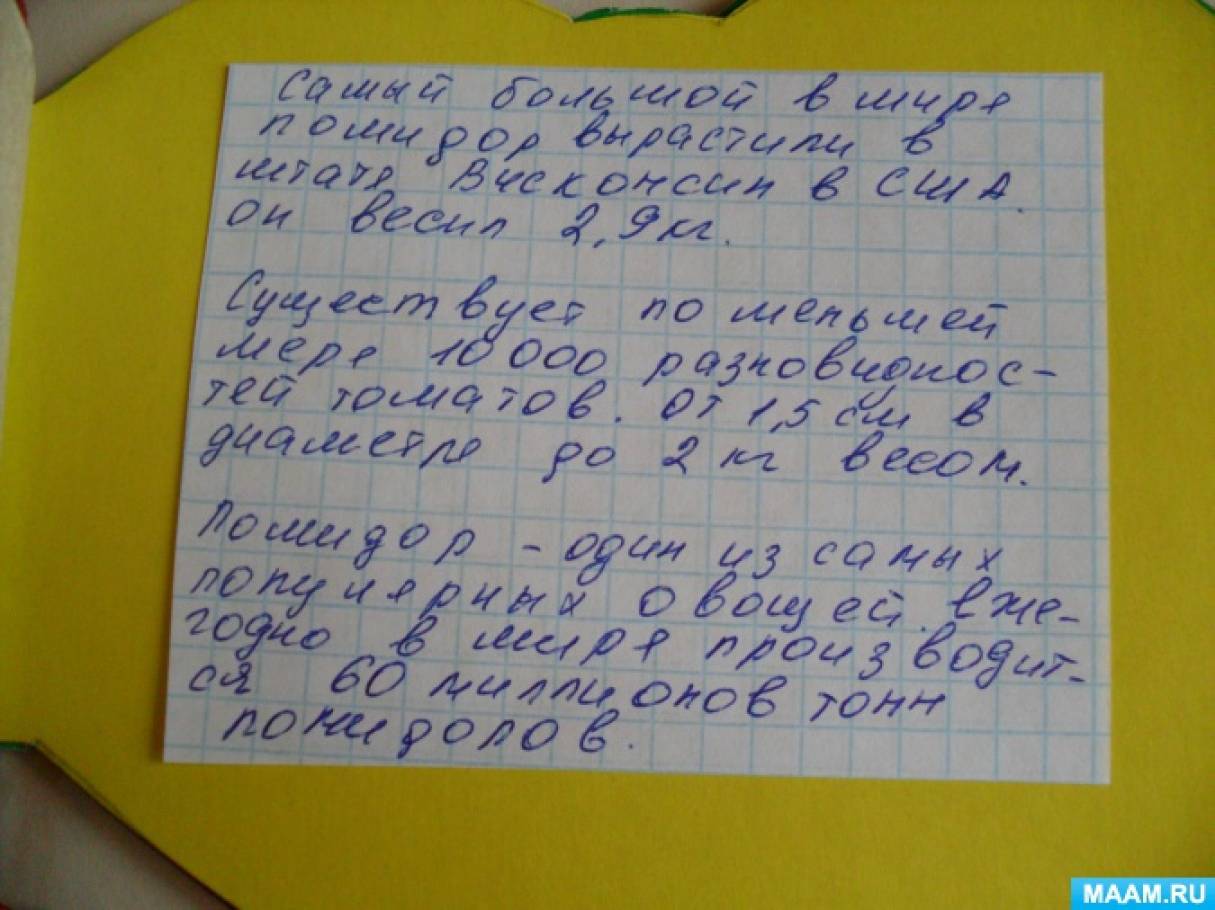 Самый большой в мире
помидор вырастили в
штате Висконсин в США.
он весил 2,9 кг.
Существует по меньшей
мере 10 000 разновиднос-
тей томатов. от 1,5 см в
диаметре до 2 кг весом.
Помидор - один из самых
популярных овощей. Еже-
годно в мире производит-
ся 60 миллионов тонн
помидоров.
MAAM.RU